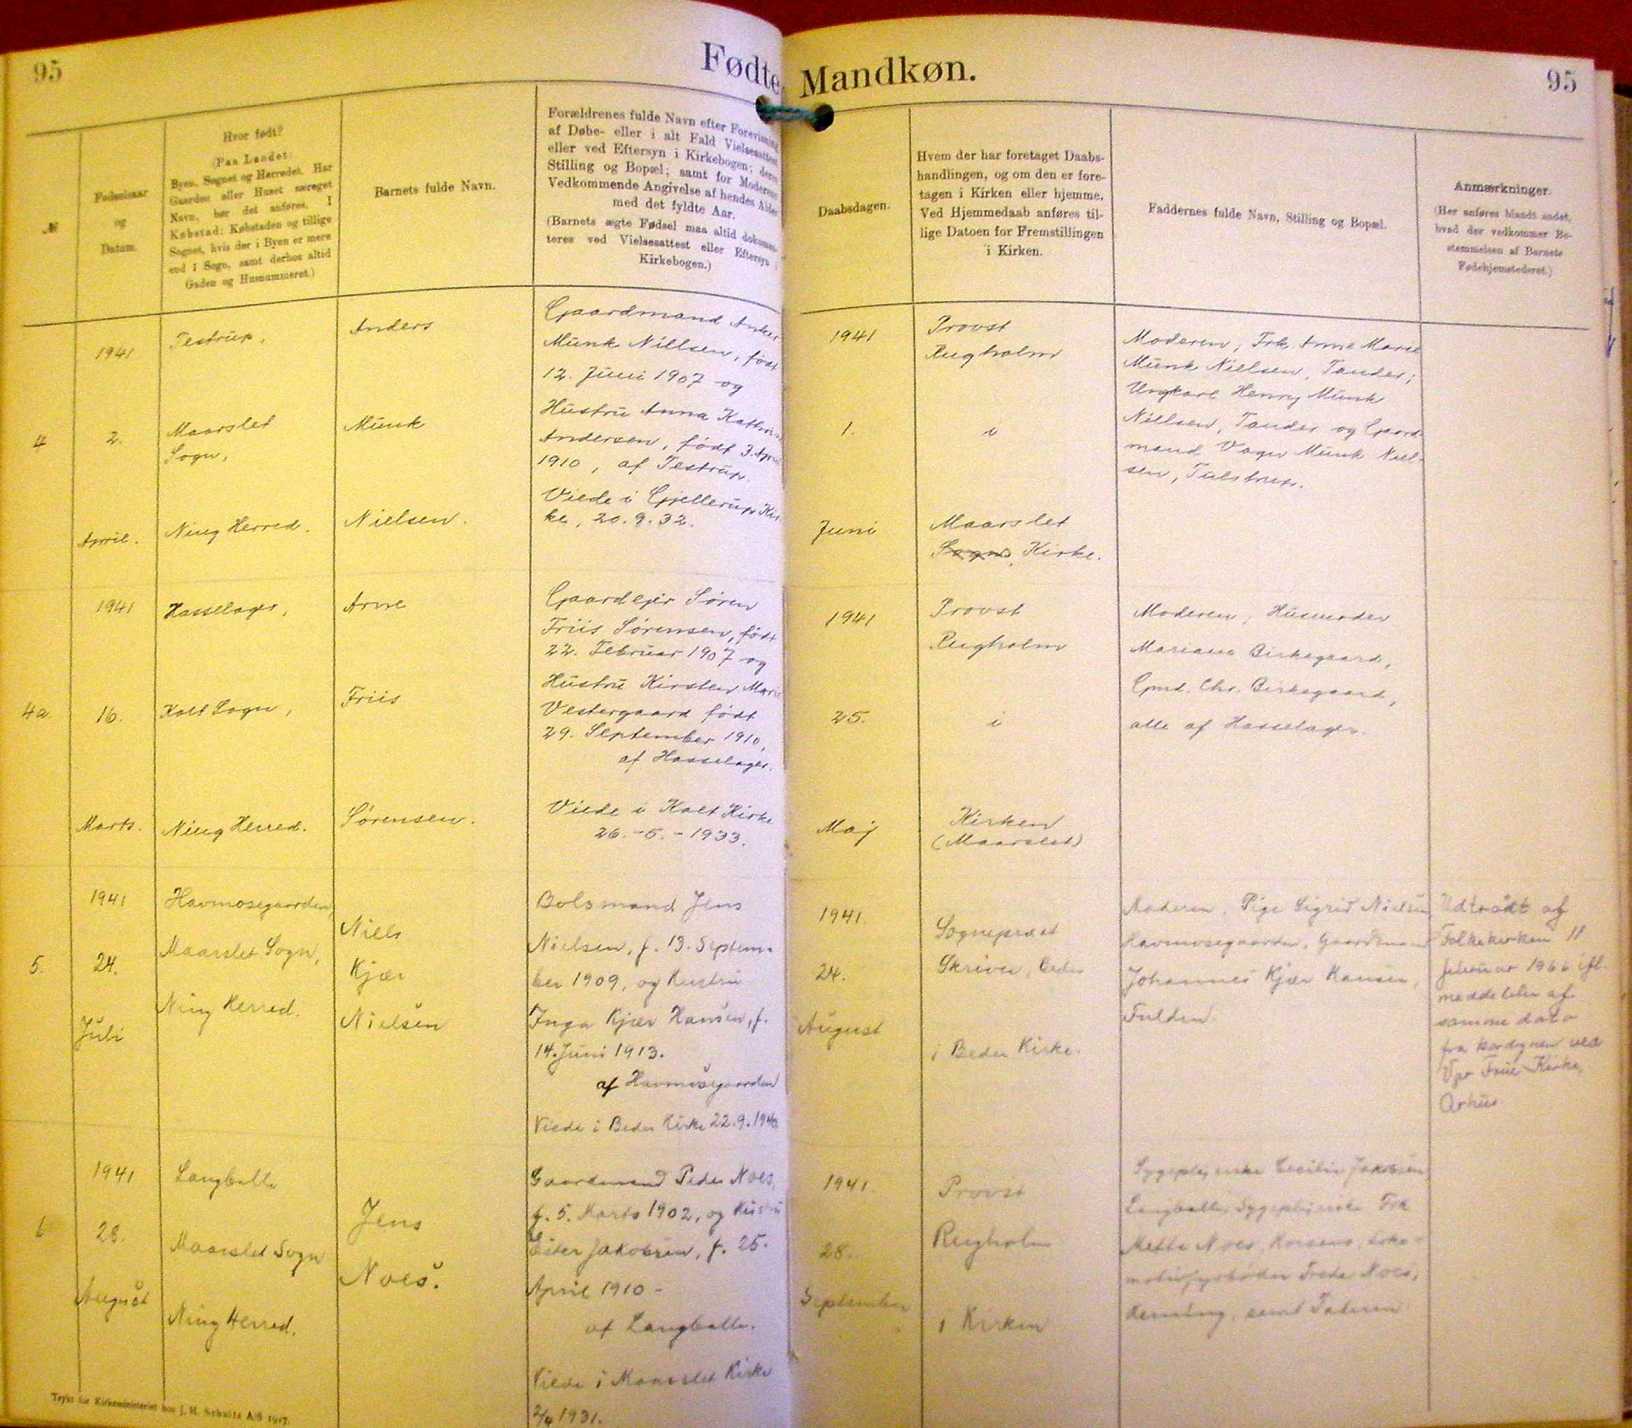 95
Fødte
Mandkøn.
95
№
Fødselsaar
og
Datum.
Hvor født?
(Paa Landet:
Byen, Sognet og Herredet. Har
Gaarden eller Huset særeget
Navn, bør det anføres. I
Købstad: Købstaden og tillige
Sognet, hvis der i Byen er mere
end 1 Sogn, samt derhos altid
Gaden og Husnummeret.)
Barnets fulde Navn.
Forældrenes fulde Navn efter Forevisning
af Døbe- eller i alt Fald Vielsesattest
eller ved Eftersyn i Kirkebogen; deres
Stilling og Bopæl; samt for Moderens
Vedkommende Angivelse af hendes Alder
med det fyldte Aar.
(Barnets ægte Fødsel maa altid dokumen-
teres ved Vielsesattest eller Eftersyn i
Kirkebogen.)
Daabsdagen.
Hvem der har foretaget Daabs-
handlingen, og om den er fore-
tagen i Kirken eller hjemme.
Ved Hjemmedaab anføres til-
lige Datoen for Fremstillingen
i Kirken.
Faddernes fulde Navn, Stilling og Bopæl.
Anmærkninger.
(Her anføres blandt andet,
hvad der vedkommer Be-
stemmelsen af Barnets
Fødehjemstederet.)
4
1941
2.
April.
Testrup,
Maarslet
Sogn,
Ning Herred.
Anders
Munk
Nielsen.
Gaardmand Anker
Munk Nielsen, født
12. Juni 1907 og
Hustru Anna Kathrine
Andersen, født 3. April
1910, af Testrup.
Viede i Gjellerup Kir
ke, 20.9.32.
1941
1.
Juni
Provst
Rugholm
i
Maarslet
Sogns, Kirke.
Moderen, Frk. Anne Marie
Munk Nielsen, Tander;
Ungkarl Henry Munk
Nielsen, Tander og Gaard-
mand Vagn Munk Niel-
sen, Tulstrup.
4a
1941
16.
Marts.
Hasselager,
Kolt Sogn,
Ning Herred.
Arne
Friis
Sørensen.
Gaardejer Søren
Friis Sørensen, født
22. Februar 1907 og
Hustru Kirsten Marie
Vestergaard født
29. September 1910,
af Hasselager.
Viede i Kolt Kirke
26.-5.-1933.
1941
25.
Maj
Provst
Rugholm
i
Kirken
(Maarslet)
Moderen, Husmoder
Mariane Birkegaard,
Gmd. Chr. Birkegaard,
alle af Hasselager.
5.
1941
24.
Juli
Havmosegaarden,
Maarslet Sogn,
Ning Herred.
Niels
Kjær
Nielsen
Bolsmand Jens
Nielsen, f. 13. Septem-
ber 1909, og Hustru
Inga Kjær Hansen, f.
14. Juni 1913.
af Havmosegaarden
Viede i Beder Kirke 22.9.1940
1941.
24.
August
Sognepræst
Skriver, Beder
i Beder Kirke.
Moderen, Pige Sigrid Nielsen
Havmosegaarden, Gaardmand
Johannes Kjær Hansen,
Fulden.
Udtrådt af
Folkekirken 11
februar 1966 ifl.
meddelelse af
samme dato
fra kordegnen ved
Vor Frue Kirke,
Århus
6
1941
28.
August
Langballe
Maarslet Sogn
Ning Herred.
Jens
Noes.
Gaardmand Peder Noes,
f. 5. Marts 1902, og Hustru
Ester Jakobsen, f. 25.
April 1910 -
af Langballe.
Viede i Maarslet Kirke
2/4 1931.
1941.
28.
September
Provst
Rugholm
i Kirken
Sygeplejerske Cecilie Jakobsen
Langballe, Sygeplejerske Frk
Mette Noes, Horsens, Loko-
motivfyrbøder Frede Noes,
Herning, samt Faderen
Trykt for Kirkeministeriet hos J. H. Schultz A/S 1917.